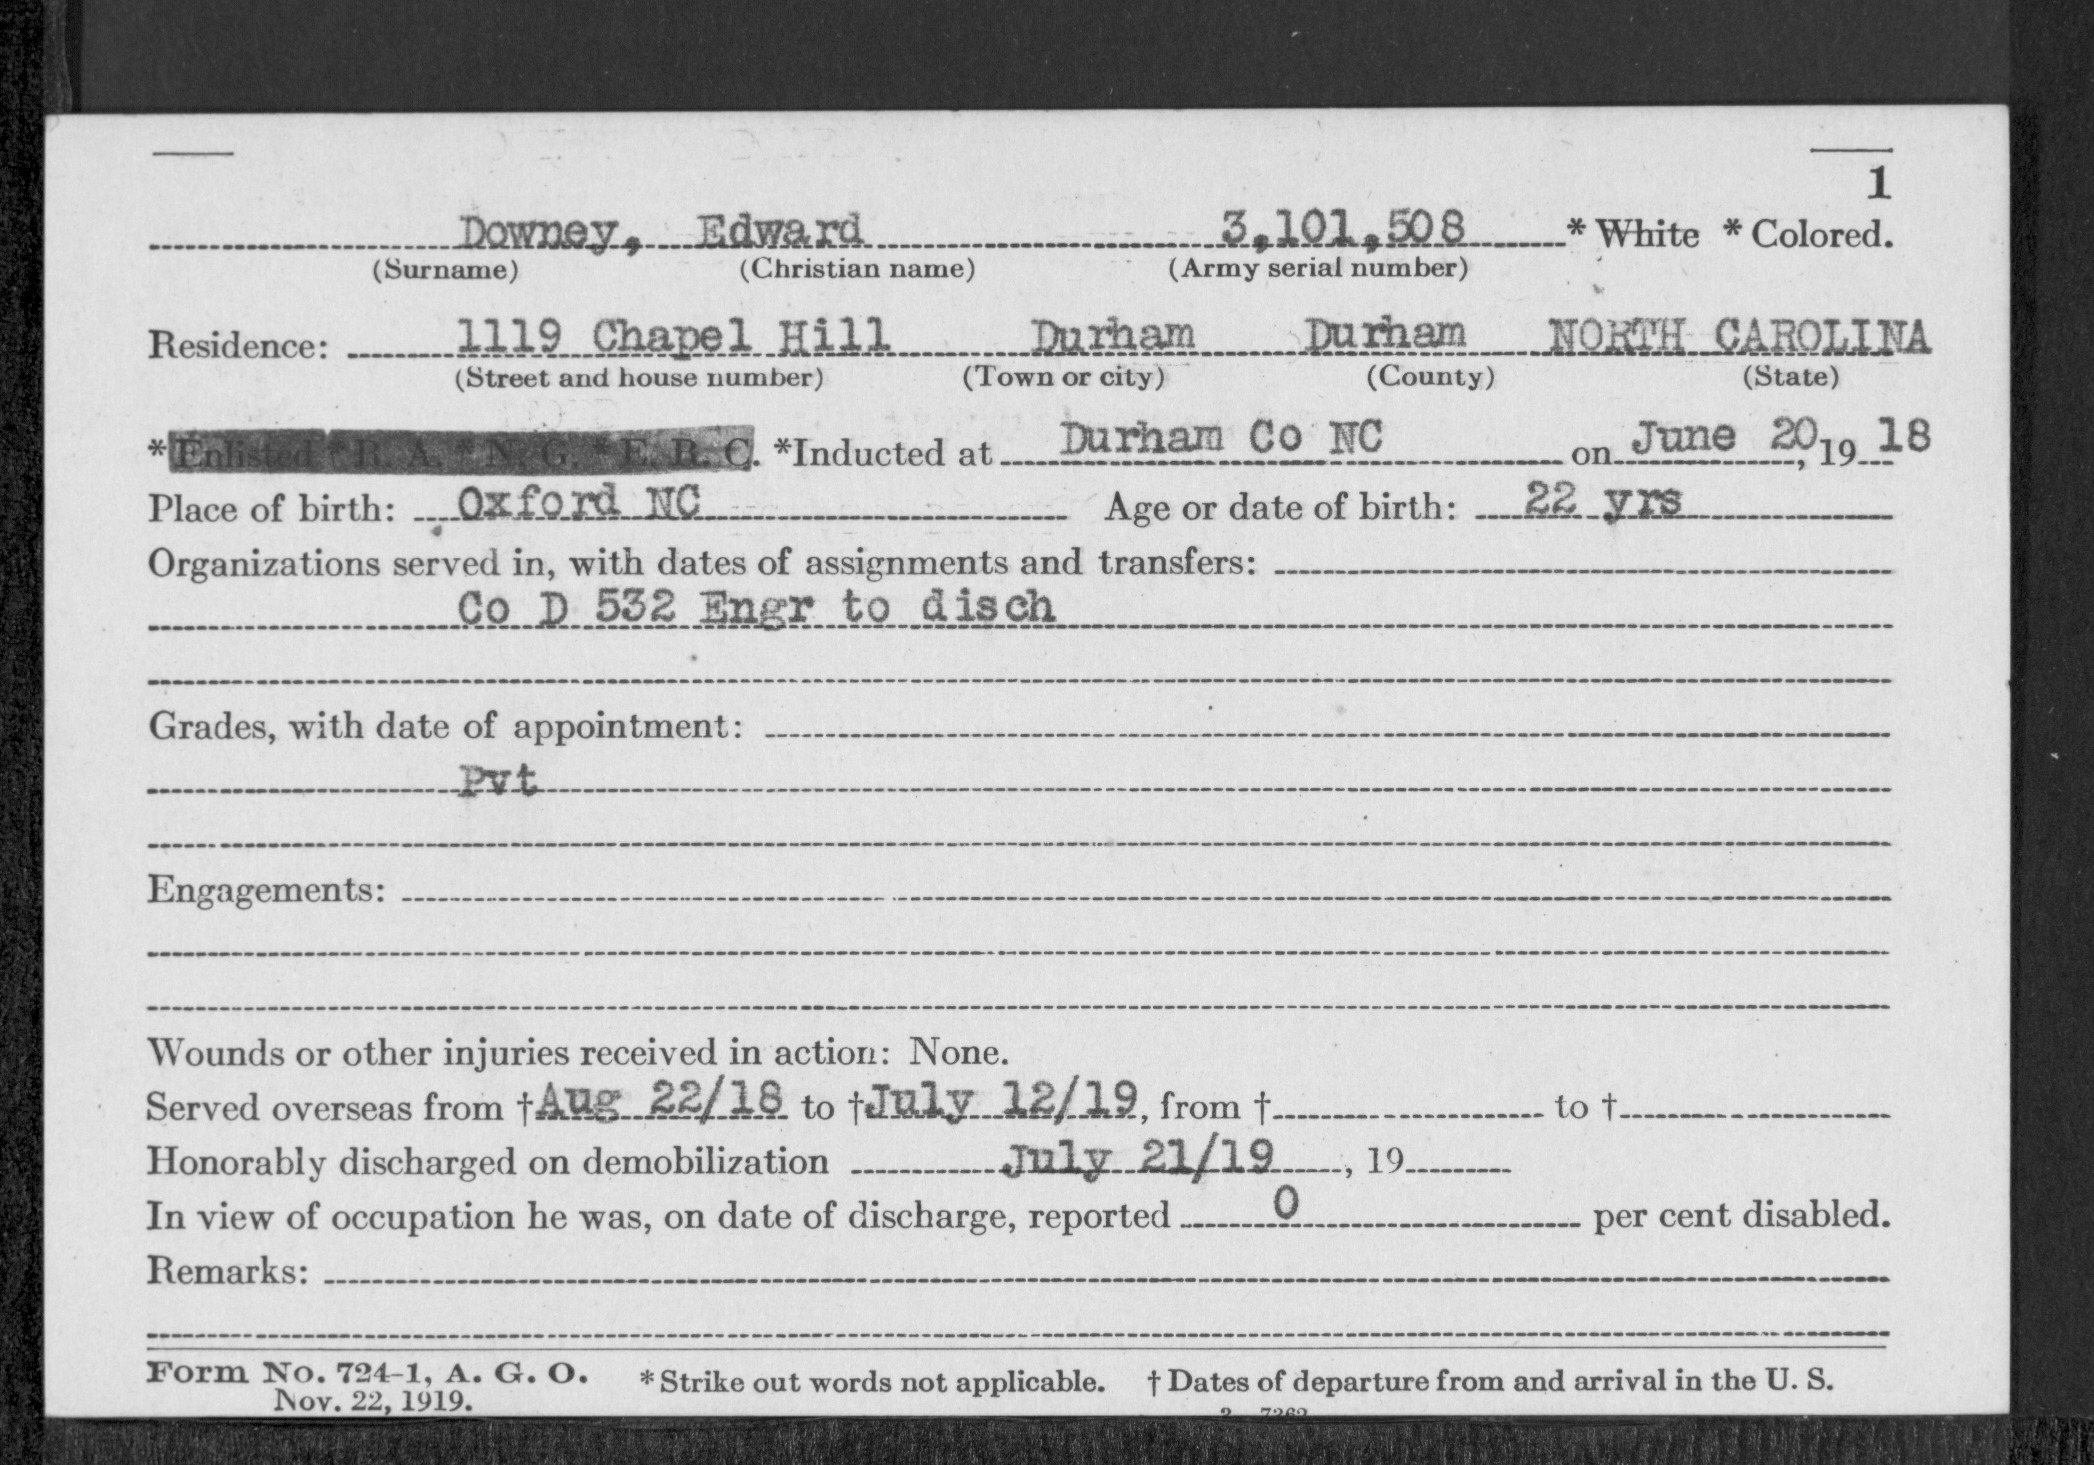 1
Downey, Edward 3,101,508 * White * Colored.
(Surname) (Christian name) (Army serial number)
Residence: 1119 Chapel Hill Durham Durham NORTH CAROLINA
(Street and house number) (Town or city) (County) (State)
*Enlisted *R. A. *N. G. *E. R. C. *Inducted at Durham Co NC on June 20, 19 18
Place of birth: Oxford NC Age or date of birth: 22 yrs
Organizations served in, with dates of assignments and transfers:
Co D 532 Engr to disch
Grades, with date of appointment:
Pvt
Engagements:
Wounds or other injuries received in action: None.
Served overseas from †Aug 22/18 to †July 12/19, from † to †
Honorably discharged on demobilization July 21/19, 19
In view of occupation he was, on date of discharge, reported 0 per cent disabled.
Remarks:
Form No. 724-1, A. G. O. *Strike out words not applicable. †Dates of departure from and arrival in the U. S.
Nov. 22, 1919.